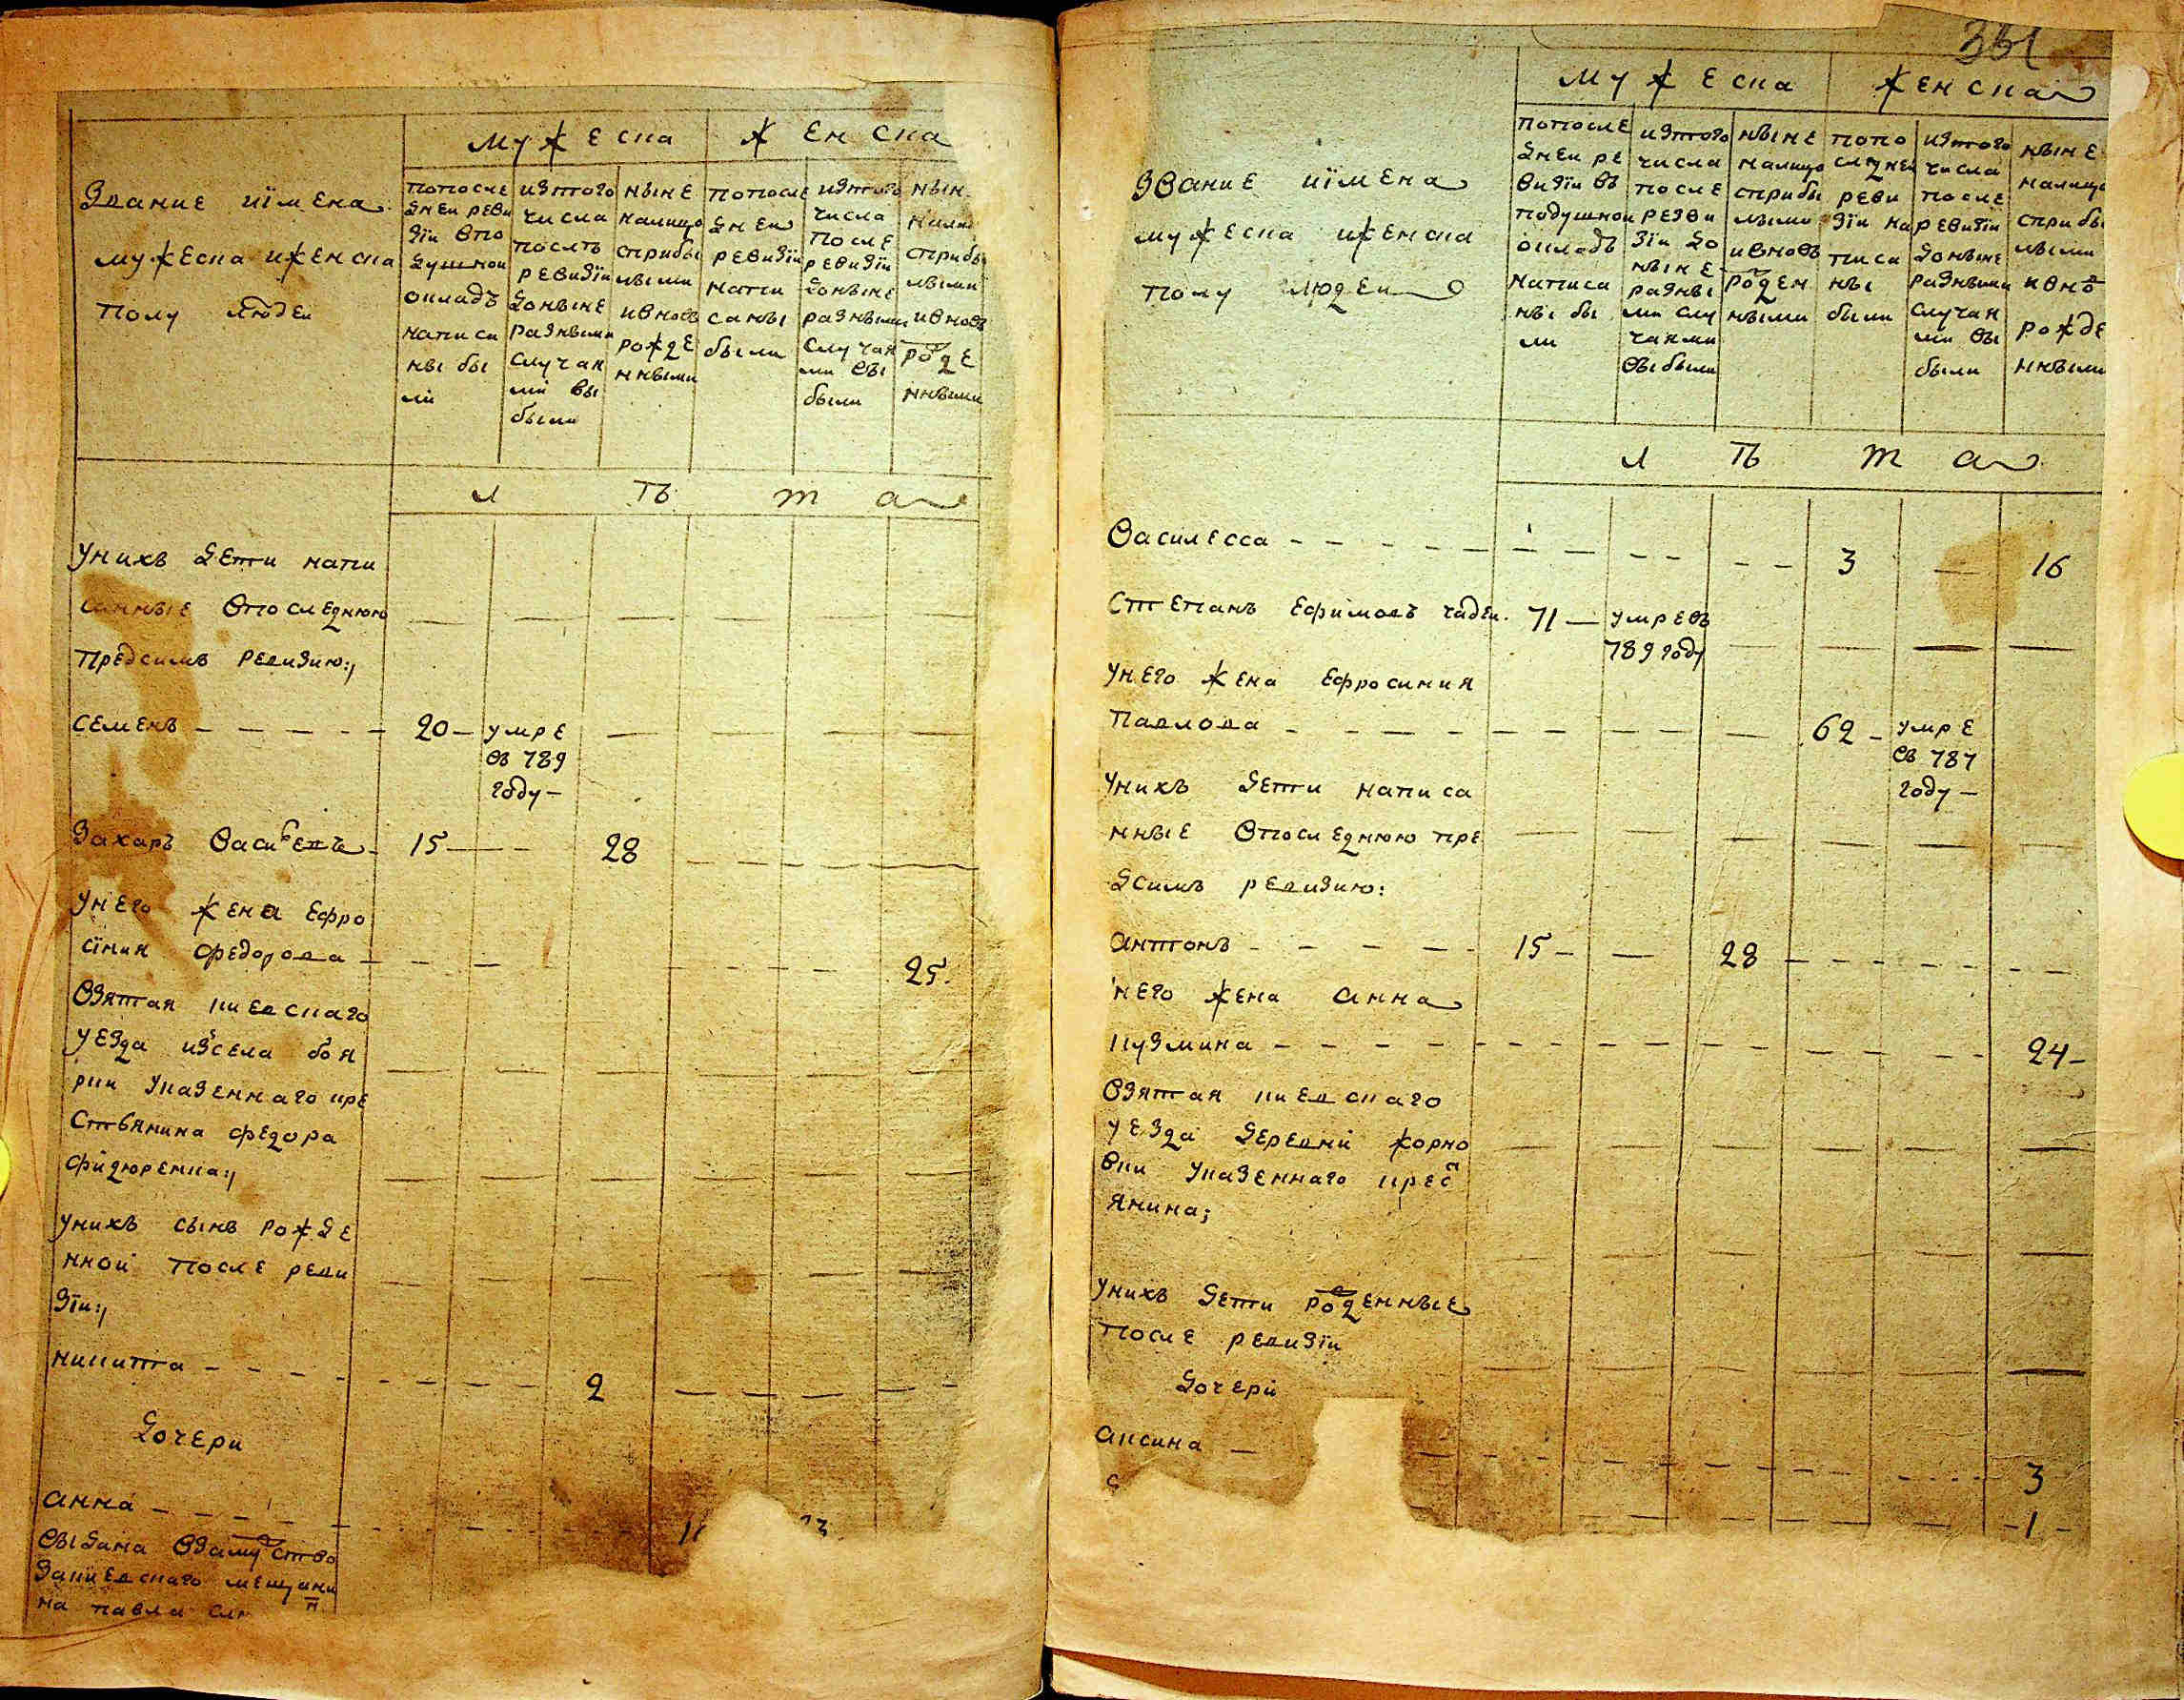 мужеска женска
Звание иїмена
мужеска иженска
полу людеи
попосле
дней реви
зїи впо
душной
окладъ
написа
ны бы
ли
изтого
числа
послѣ
ревизїи
донынѣ
разными
случая
мї вы
были
ныне
налицо
сприбы
лыми
ивновъ
рожде
нными
попосле
дней
ревизїи
напи
саны
были
изтого
числа
после
ревизїи
донынѣ
разными
случая
ми вы
были
нын
нали
сприбы
лыми
ивновъ
роде
нными
л ѣ т а
Унихъ дети напи
санные впоследнюю
предсимъ ревизию:/
Семенъ 20 умре
въ 789
году
Захаръ 15 28
Унего жена Ефро
сїния Федорова 25.
Взятая киевскаго
уезда изсела боя
рки указеннаго кре
стьянина Федора
Фидюренка:/
Унихъ сынъ рожде
нной после реви
зїи:/
Никита 2
дочери
Анна
выдана взамуство
закиевскаго мещани
на павла
351
мужеска женска
Звание иїмена
мужеска иженска
полу людеи
попосле
дней ре
визїи въ
подушной
окладъ
написа
ны бы
ли
изтого
числа
после
резви
зїи до
ныне
разны
ми слу
чаями
выбыли
ныне
налицо
сприбы
лыми
ивновъ
роден
ными
попо
следней
реви
зїи на
писа
ны
были
изтого
числа
после
ревизїи
донынe
разными
случая
ми вы
были
ныне
налицо
сприбы
лыми
ивно
рожде
нными
л ѣ т а
Василесса 3 16
Степанъ Ефимовъ 71 умревъ
789 году
Унего жена Ефросиния
Павлова 62 умре
въ 787
году
Унихъ дети написа
нные впоследнюю пре
дсимъ ревизию:
Антонъ 15 28
него жена Анна
Кузмина 24
Взятая киевскаго
уезда деревни жорно
вки указеннаго крес
янина;
Унихъ дети роденные
после ревизїи
дочери
Аксина 3
1